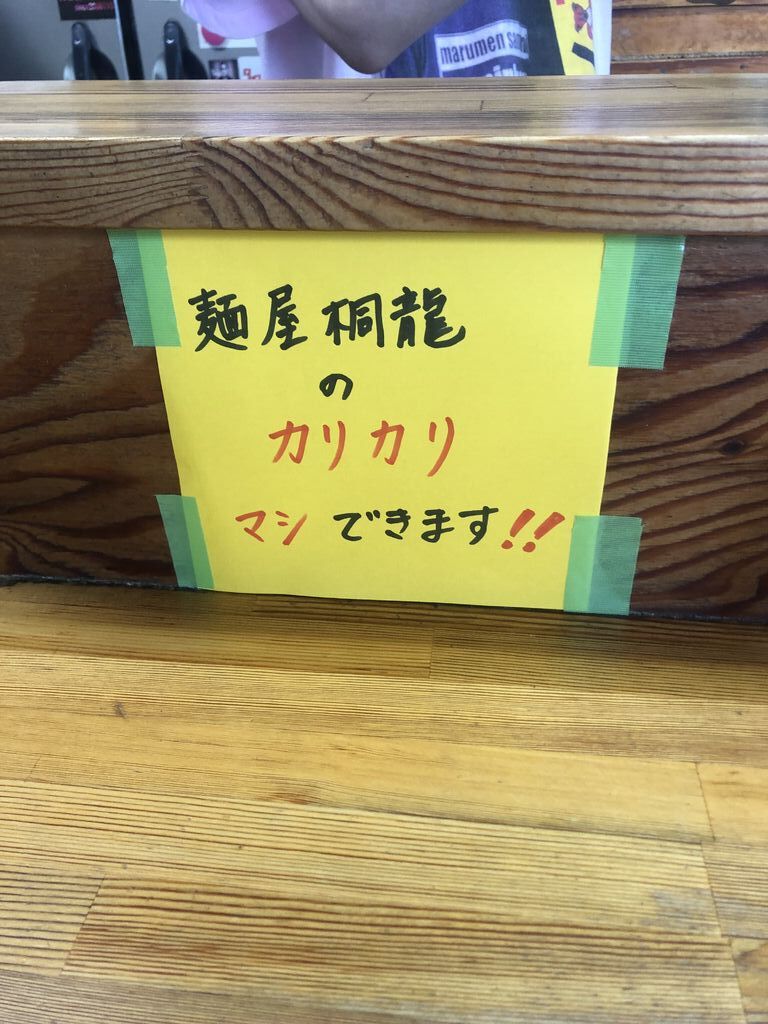 marumen
麺屋桐龍
の
カリカリ
マシできます!!